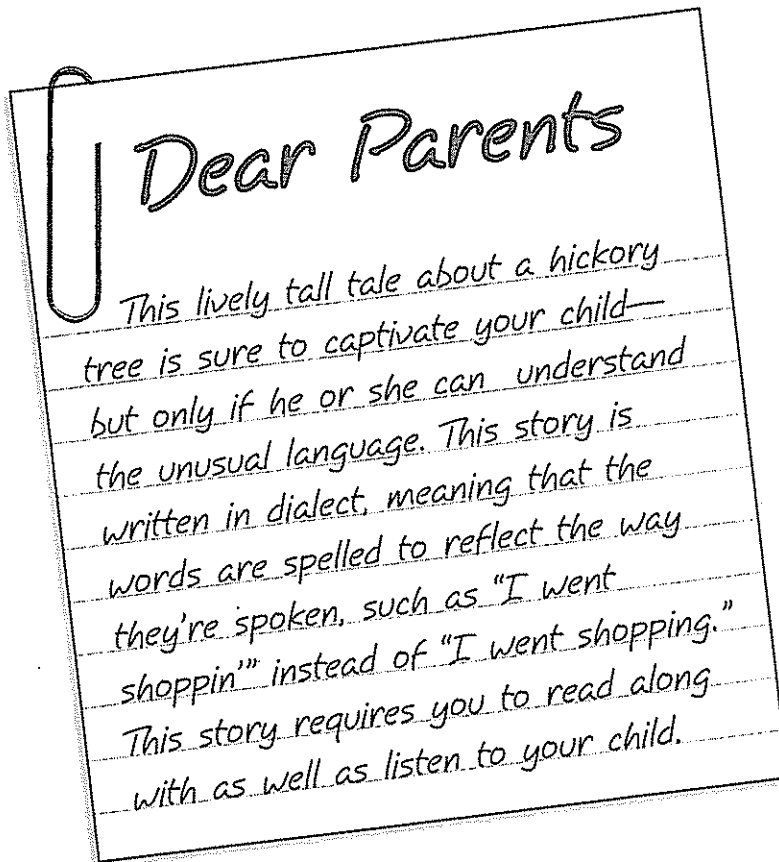 Dear Parents
This lively tall tale about a hickory
tree is sure to captivate your child—
but only if he or she can understand
the unusual language. This story is
written in dialect, meaning that the
words are spelled to reflect the way
they're spoken, such as “I went
shoppin'” instead of “I went shopping.”
This story requires you to read along
with as well as listen to your child.